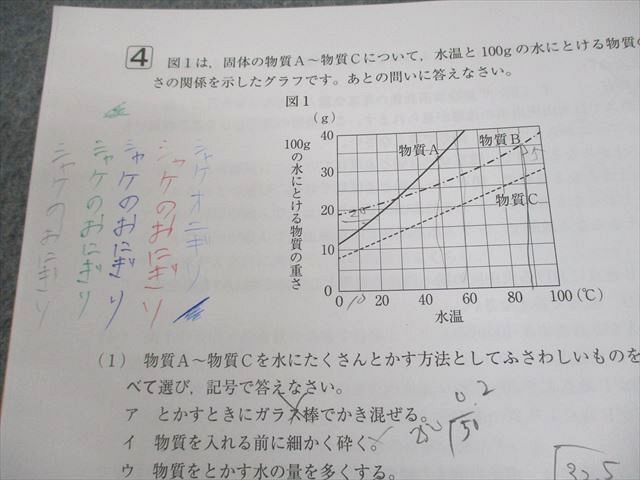 4 図1は，固体の物質A～物質Cについて，水温と100gの水にとける物質の
さの関係を示したグラフです。あとの問いに答えなさい。
図1
(g)
100gの水にとける物質の重さ
40
30
20
10
0
0 20 40 60 80 100 (℃)
水温
物質A
物質B
物質C
10
シャケオニギリ
シャケのおにぎり
シャケのおにぎり
シャケのおにぎり
シャケのおにぎり
(1) 物質A～物質Cを水にたくさんとかす方法としてふさわしいものを
べて選び，記号で答えなさい。
ア とかすときにガラス棒でかき混ぜる。
0.2
50
イ 物質を入れる前に細かく砕く。
ウ 物質をとかす水の量を多くする。
32.5